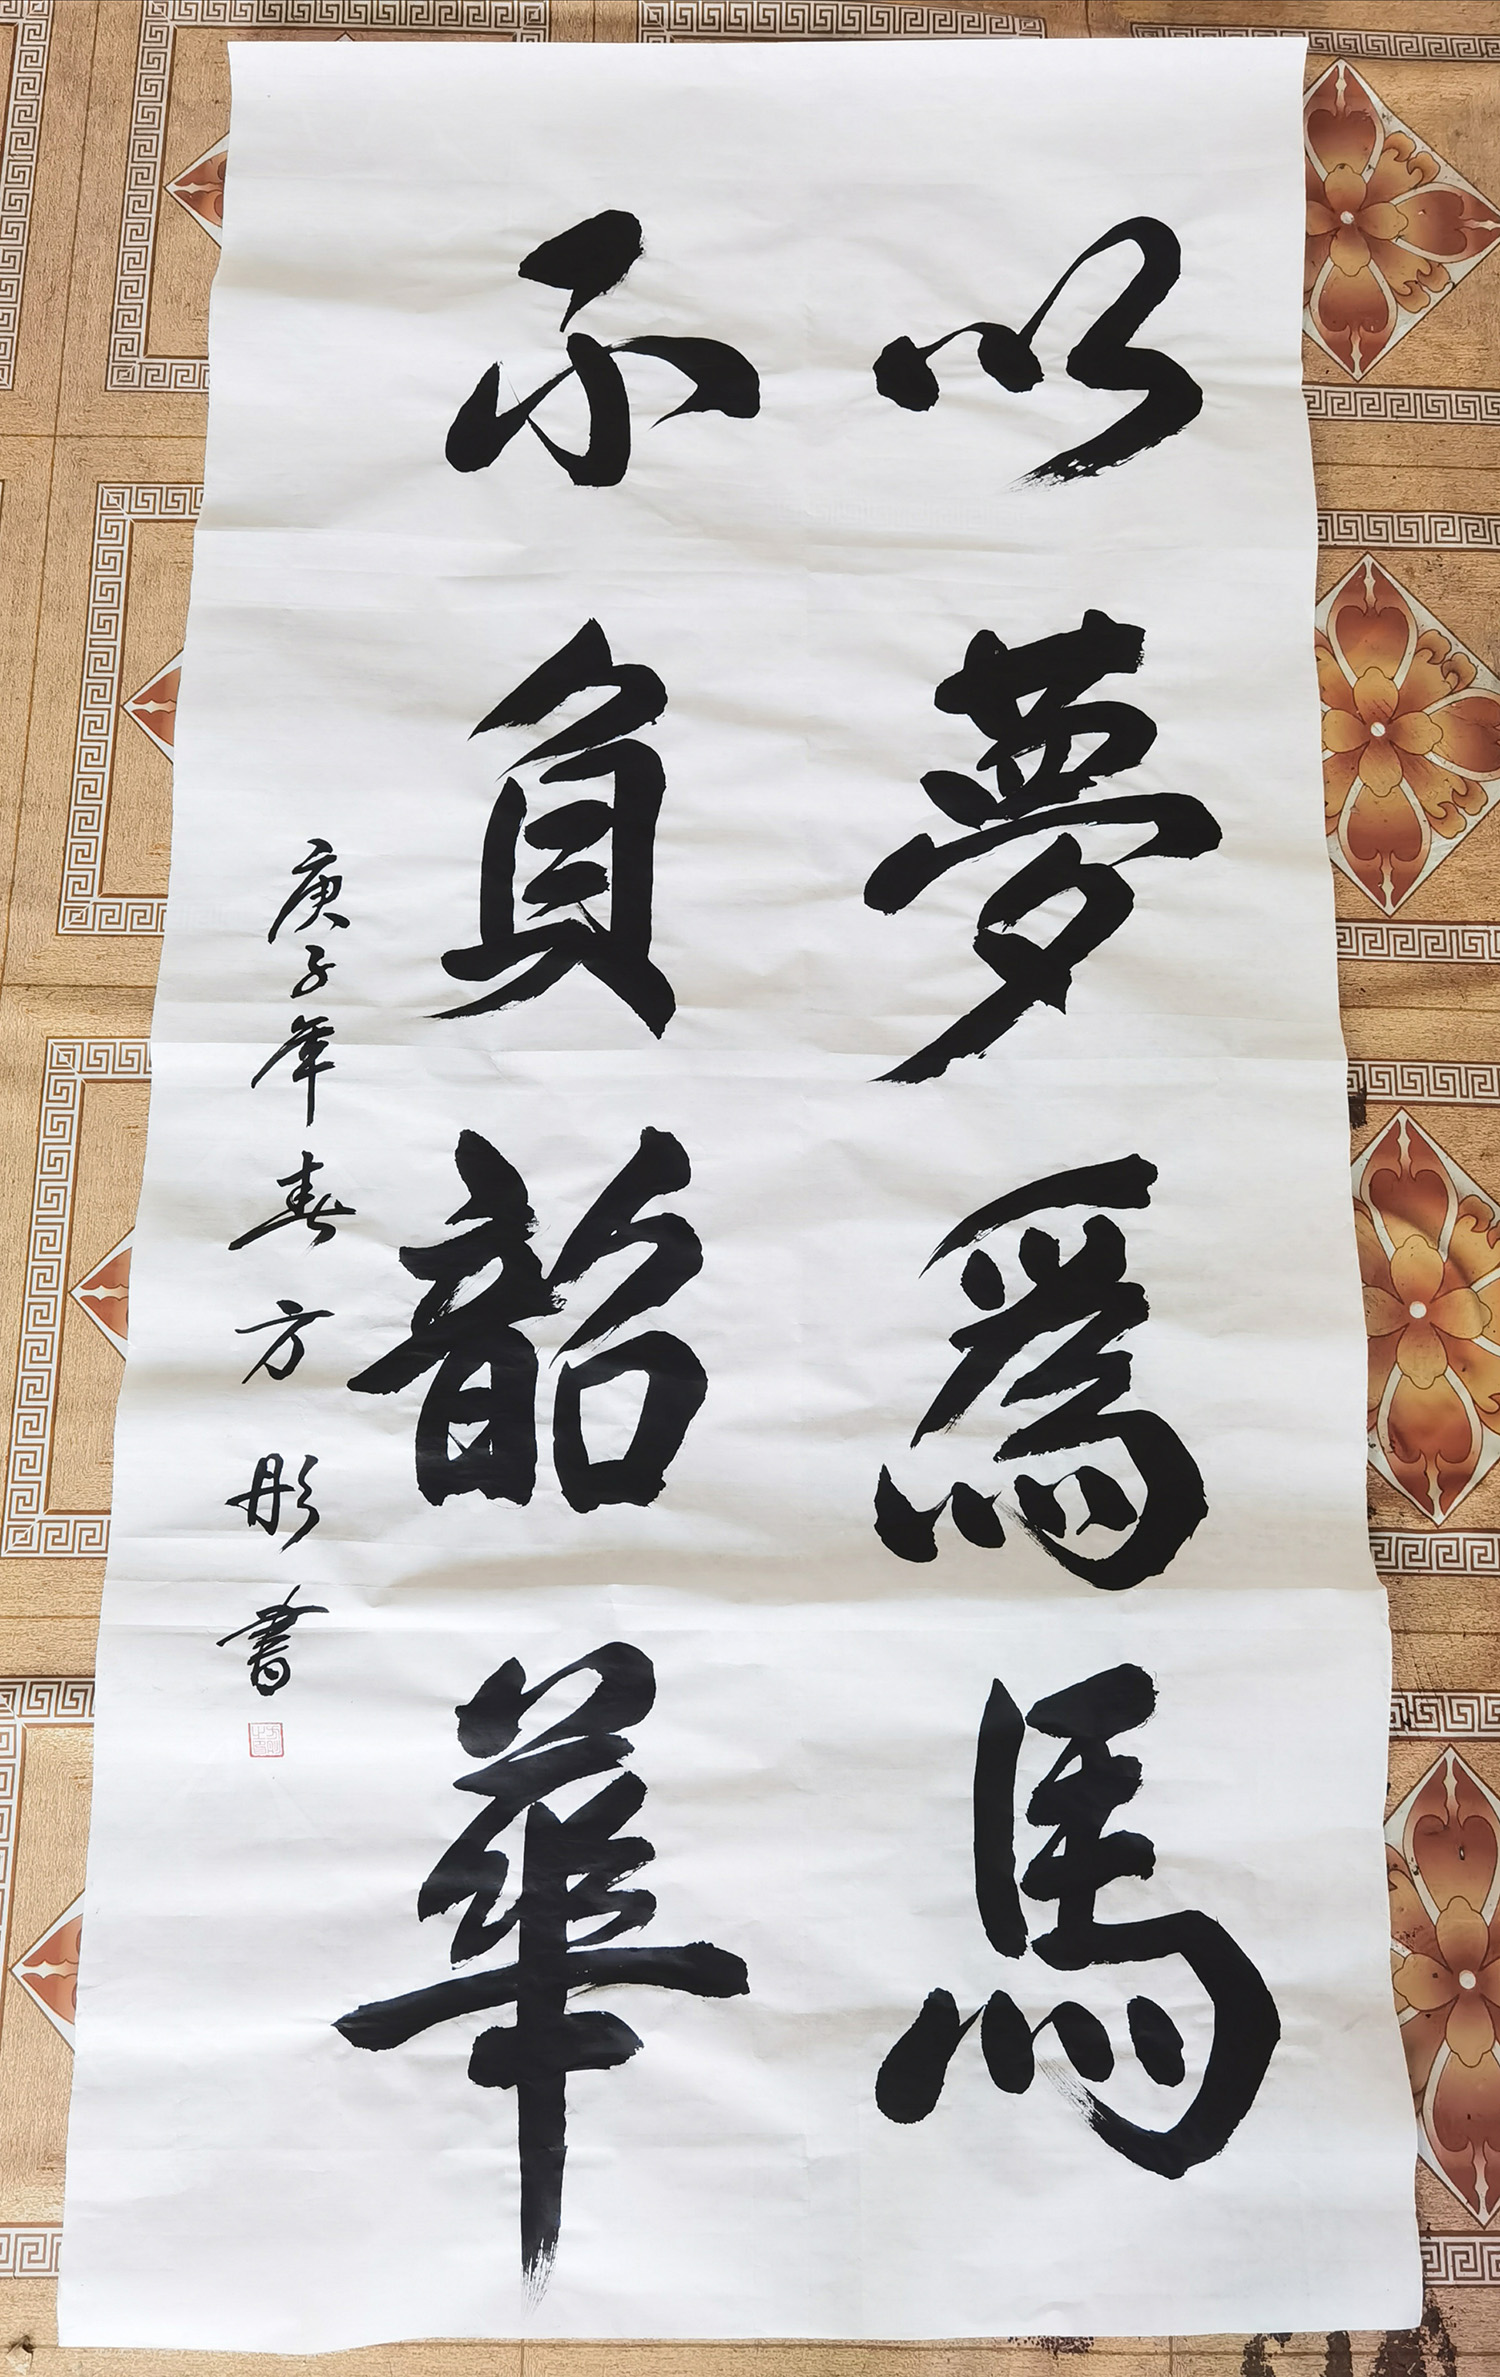 以夢爲馬
不負韶華
庚子年春方彤書